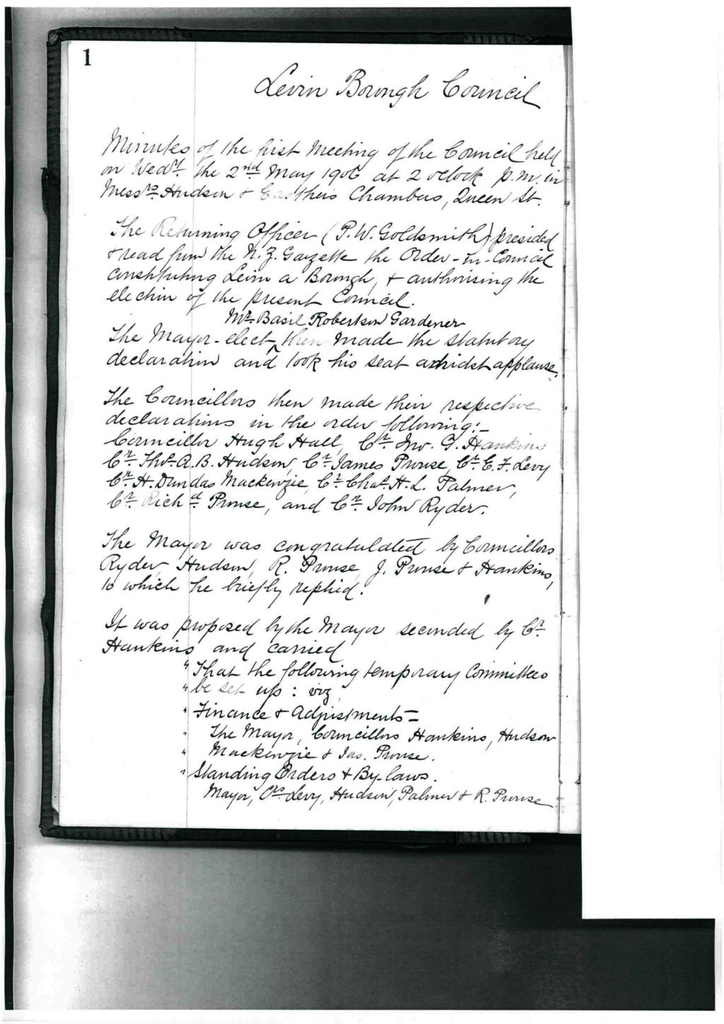 1
Levin Borough Council
Minutes of the first Meeting of the Council held
on Wedy. the 2nd May 1906 at 2 o'clock p.m. in
Messrs Hudson & Chambers, Queen St.
The Returning Officer (P.W. Goldsmith) presided
& read from the N.Z. Gazette the Order-in-Council
constituting Levin a Borough, & authorising the
election of the present Council.
Mr. Basil Robertson Gardener
The Mayor-elect ^ then made the statutory
declaration and took his seat amidst applause.
The Councillors then made their respective
declarations in the order following:-
Councillor Hugh Hall, Cr. Jno. G. Hankins
Cr. Thos. A.B. Hudson, Cr. James Prouse, Cr. C.F. Levy
Cr. H. Dundas Mackenzie, Cr. Chas. H.L. Palmer,
Cr. Richd. Prouse, and Cr. John Ryder.
The Mayor was congratulated by Councillors
Ryder, Hudson, R. Prouse J. Prouse & Hankins,
to which he briefly replied.
It was proposed by the Mayor seconded by Cr.
Hankins and carried
" That the following temporary Committees
" be set up: viz
" Finance & Adjustments -
" The Mayor, Councillors Hankins, Hudson
" Mackenzie & Jas. Prouse.
" Standing Orders & By-laws.
Mayor, Crs Levy, Hudson, Palmer & R. Prouse